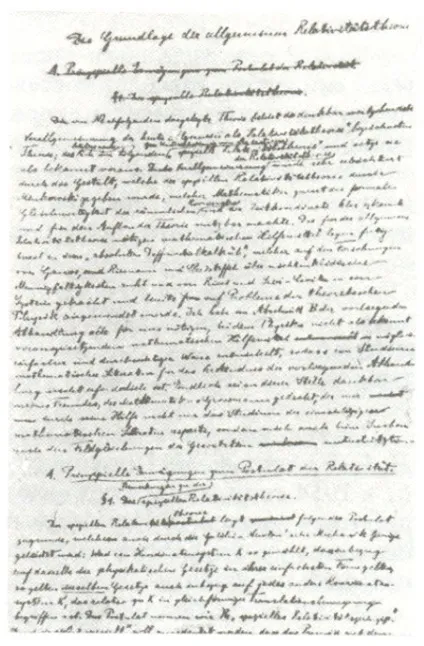 Die Grundlage der allgemeinen Relativitätstheorie
A. Prinzipielle Erwägungen zum Postulat der Relativität
§1. Die spezielle Relativitätstheorie.
Die im Nachfolgenden dargelegte Theorie bildet die denkbar weitgehendste
Verallgemeinerung der heute allgemein als "Relativitätstheorie" bezeichneten
Theorie; im folgenden "spezielle Relativitätstheorie" und setze sie
als bekannt voraus. Die Verallgemeinerung der Relativitätstheorie wurde sehr erleichtert
durch die Gestalt, welche der speziellen Relativitätstheorie durch
Minkowski gegeben wurde, welcher Mathematiker zuerst die formale
Gleichwertigkeit der räumlichen und der Zeitkoordinate klar erkannte
und für den Aufbau der Theorie nutzbar machte. Die für die allgemeine
Relativitätstheorie nötigen mathematischen Hilfsmittel lagen fertig
bereit in dem "absoluten Differentialkalkül", welcher auf den Forschungen
von Gauss, Riemann und Christoffel über nichteuklidische
Mannigfaltigkeiten ruht und von Ricci und Levi-Civita in ein
System gebracht und bereits auf Probleme der theoretischen
Physik angewendet wurde. Ich habe im Abschnitt B der vorliegenden
Abhandlung alle für uns nötigen, bei dem Physiker nicht als bekannt
vorauszusetzenden mathematischen Hilfsmittel in möglichst
einfacher und durchsichtiger Weise entwickelt, sodass ein Studium
mathematischer Literatur für das Verständnis der vorliegenden Abhand-
lung nicht erforderlich ist. Endlich sei an dieser Stelle dankbar
meines Freundes, des Mathematikers Grossmann gedacht, der mir
durch seine Hilfe nicht nur das Studium der einschlägigen
mathematischen Literatur ersparte, sondern mich auch beim Suchen
nach den Feldgleichungen der Gravitation unterstützte.
A. Prinzipielle Erwägungen zum Postulat der Relativität.
Bemerkungen zu der
§1. Die spezielle Relativitätstheorie.
Der speziellen Relativitätstheorie liegt folgendes Postulat
zugrunde, welchem auch durch die Galilei-Newton'sche Mechanik Genüge
geleistet wird: Wird ein Koordinatensystem K so gewählt, dass in bezug
auf dasselbe die physikalischen Gesetze in ihrer einfachsten Form gelten,
so gelten dieselben Gesetze auch in bezug auf jedes andere Koordinaten-
system K', das relativ zu K in gleichförmiger Translationsbewegung
begriffen ist. Dies Postulat nennen wir "spezielles Relativitätsprinzip".